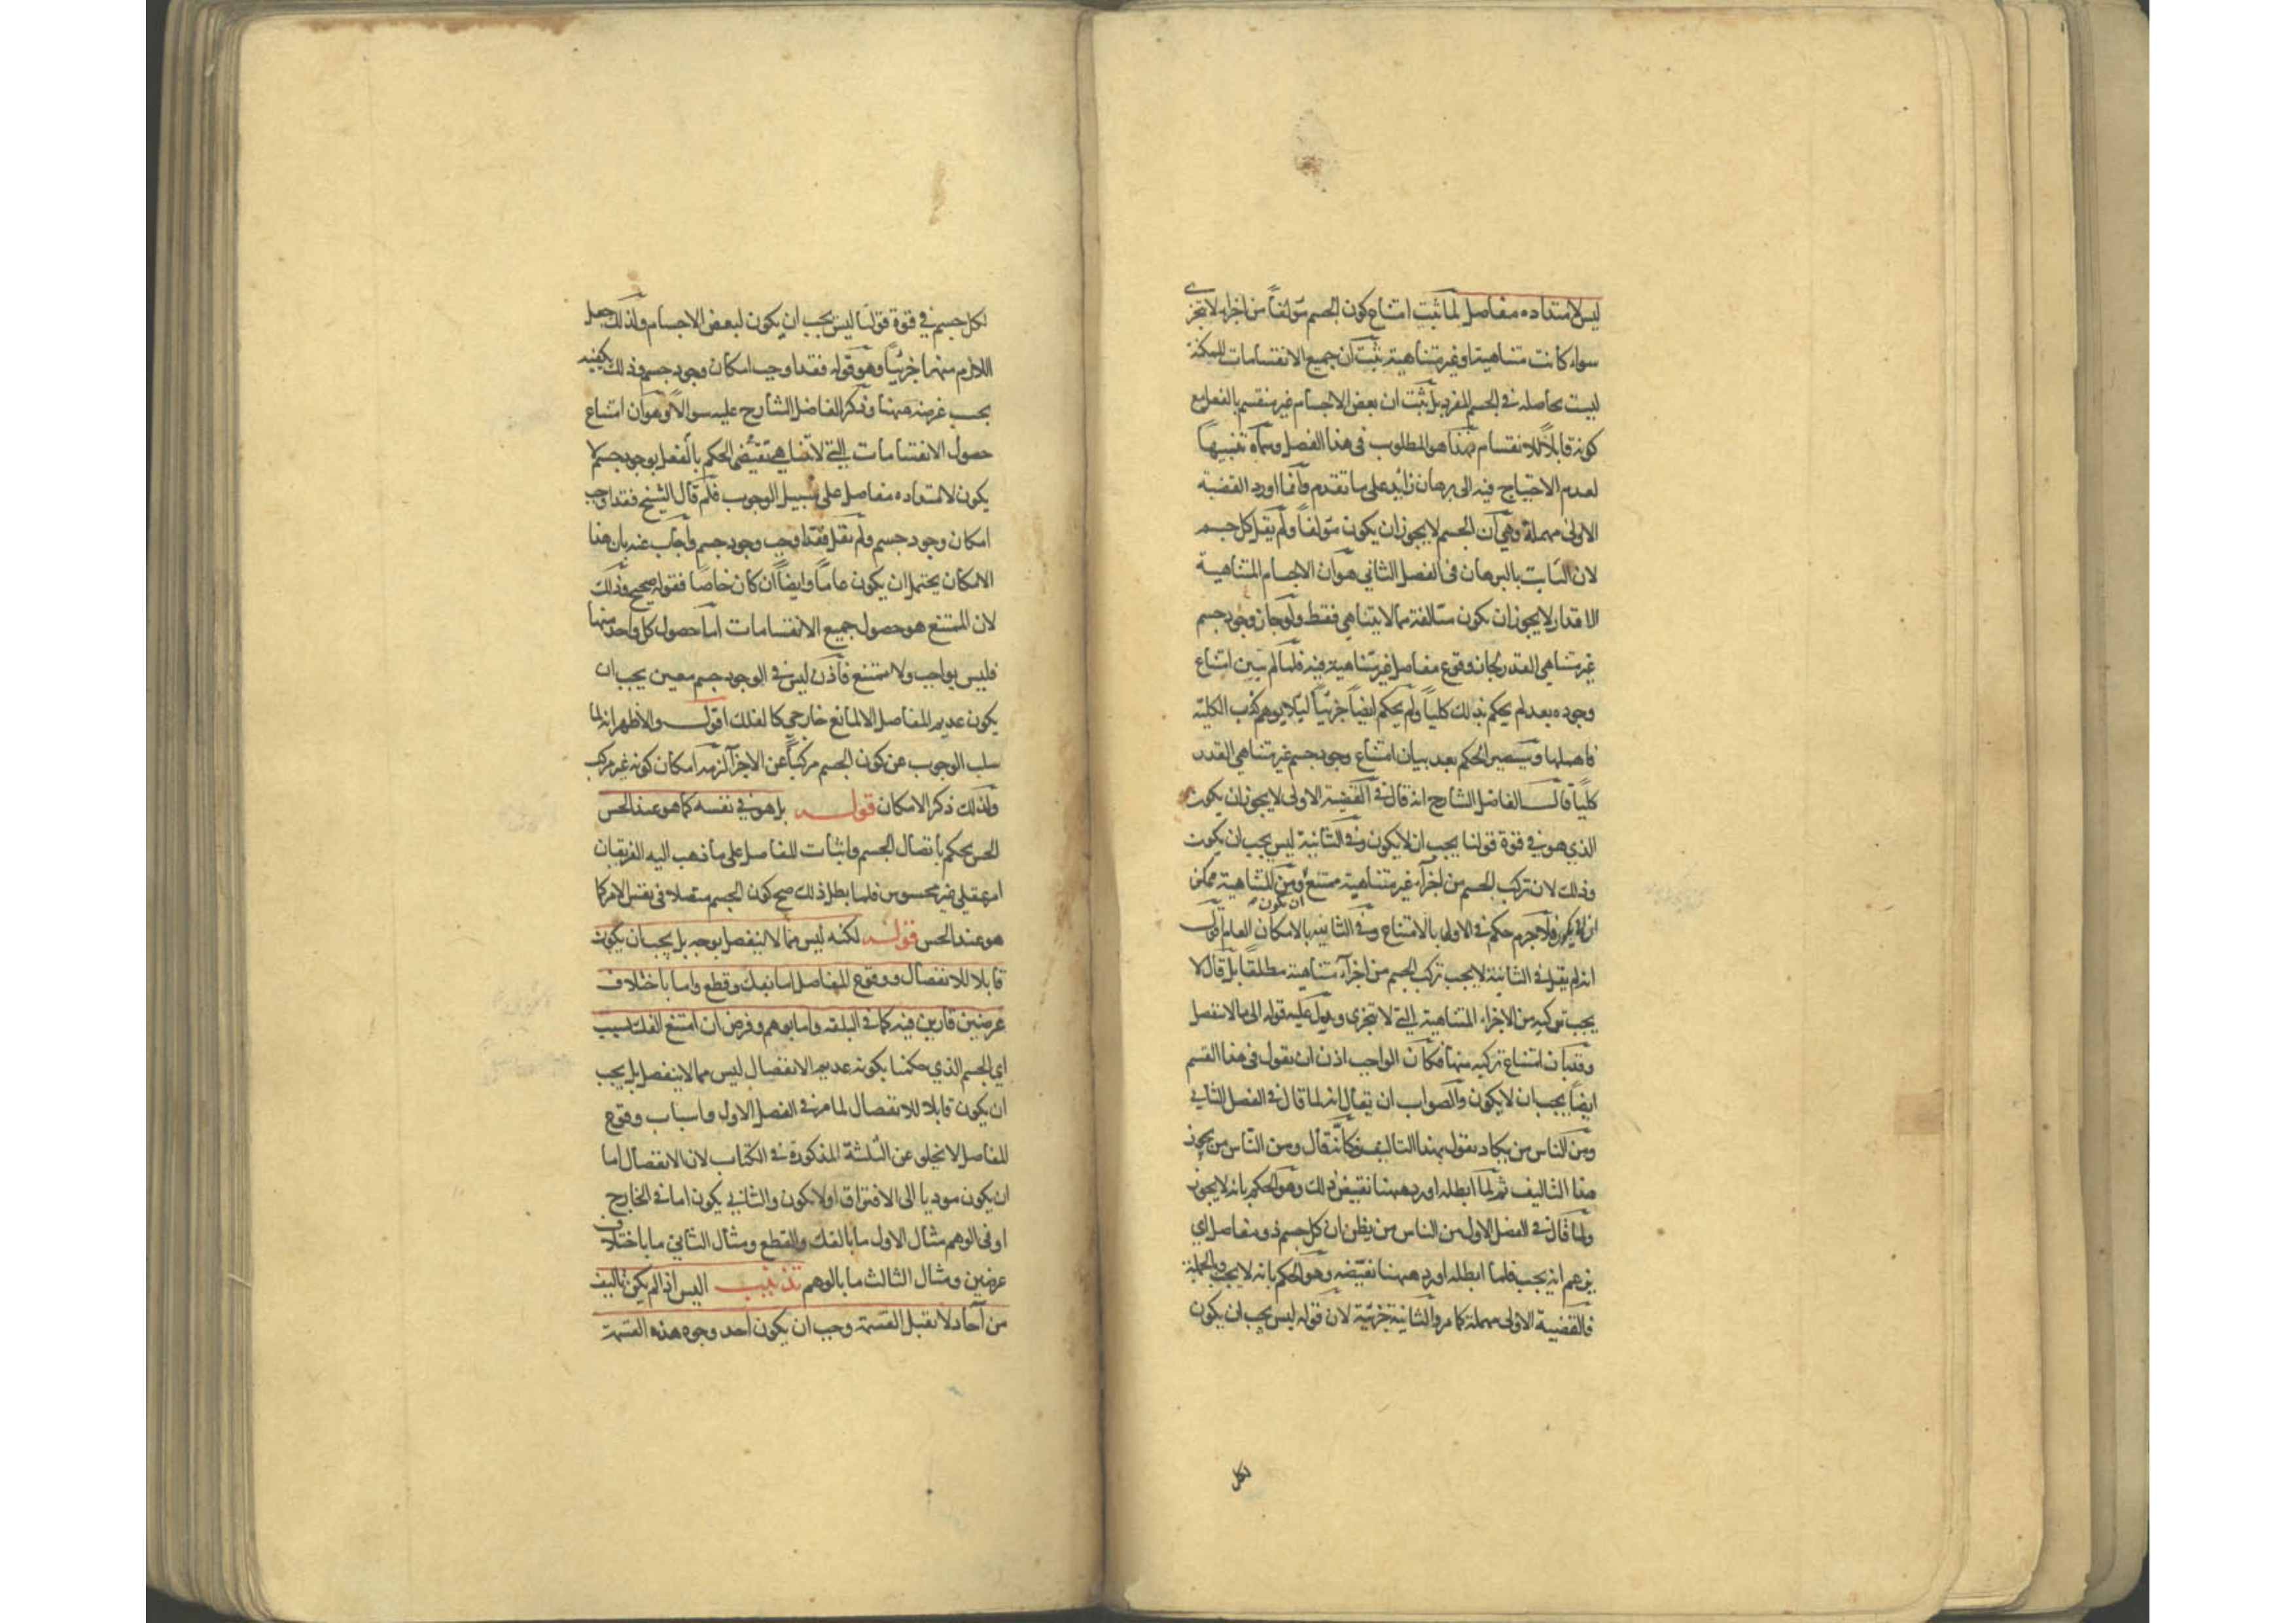 ليس لامتداده مفاصل لما ثبت امتناع كون الجسم مؤلفاً من اجزاء لا تتجزى
سواء كانت متناهية او غير متناهية ثبت ان جميع الانقسامات الممكنة
ليست بحاصله فى الجسم المفرد بل ثبت ان بعض الاجسام غير منقسم بالفعل مع
كونه قابلاً للانقسام فهذا هو المطلوب فى هذا الفصل وسماه تنبيهاً
لعدم الاحتياج فيه الى برهان زائد على ما تقدم وانما اورد القضية
الاولى مهملة وهى ان الجسم لا يجوز ان يكون مؤلفاً ولم يقل كل جسم
لان الثابت بالبرهان فى الفصل الثانى هو ان الاجسام المتناهية
الاقدار لا يجوز ان يكون متالفة مما لا يتناهى فقط ولو جاز وجود جسم
غير متناهى القدر لجاز وقوع مفاصل غير متناهية فيه فلما لم يتبين امتناع
وجوده بعد لم يحكم بذلك كلياً ولم يحكم ايضاً جزئياً ليلا يوهم كذب الكلية
فاهملها وسيصير الحكم بعد بيان امتناع وجود جسم غير متناهى القدر
كلياً قال الفاضل الشارح انه قال فى القضية الاولى لا يجوز ان يكون
الذي هو فى قوة قولنا يجب ان لا يكون وفى الثانية ليس يجب ان يكون
وذلك لان تركب الجسم من اجزاء غير متناهية ممتنع ومن المتناهية ممكن
ان يكون فلا جرم حكم فى الاولى بالامتناع وفى الثانية بالامكان العام اقول
انه لم يقل فى الثانية لا يجب تركب الجسم من اجزاء متناهية مطلقاً بل قال لا
يجب تركبه من الاجزاء المتناهية التى لا تتجزى ويدل عليه قوله الى ما لا ينفصل
وقد بان امتناع تركبه منها فكان الواجب اذن ان يقول فى هذا القسم
ايضاً يجب ان لا يكون والصواب ان يقال انه لما قال فى الفصل الثانى
ومن الناس من يكاد يقول بهذا التاليف فكانه قال ومن الناس من يجوز
هذا التاليف ثم لما ابطله اورد ههنا نقيض ذلك وهو الحكم بانه لا يجوز
ولما قال فى الفصل الاول من الناس من يظن ان كل جسم ذو مفاصل اي
يزعم انه يجب فلما ابطله اورد ههنا نقيضه وهو الحكم بانه لا يجب وبالجملة
فالقضية الاولى مهملة كما مر والثانية جزئية لان قوله ليس يجب ان يكون
لكل
لكل جسم فى قوة قولنا ليس يجب ان يكون لبعض الاجسام ولذلك جعل
اللازم منهما جزئياً وهو قوله فقد اوجب امكان وجود جسم وذلك يكفيه
بحسب غرضه ههنا وذكر الفاضل الشارح عليه سوالاً وهو ان امتناع
حصول الانقسامات التى لا تتناهى يقتضى الحكم بالفعل بوجود جسم لا
يكون لامتداده مفاصل على سبيل الوجوب فلم قال الشيخ فقد اوجب
امكان وجود جسم ولم يقل فقد اوجب وجود جسم واجاب عنه بان هذا
الامكان يحتمل ان يكون عاماً وايضاً ان كان خاصاً فقوله صحيح وذلك
لان الممتنع هو حصول جميع الانقسامات اما حصول كل واحد منها
فليس بواجب ولا ممتنع فاذن ليس فى الوجود جسم معين يجب ان
يكون عديم المفاصل الا لمانع خارجي كالفلك اقول والاظهر انه لما
سلب الوجوب عن كون الجسم مركباً عن الاجزاء لزمه امكان كونه غير مركب
ولذلك ذكر الامكان قوله بل هو فى نفسه كما هو عند الحس
الحس يحكم باتصال الجسم واثبات المفاصل على ما ذهب اليه الفريقان
امر عقلي غير محسوس فلما بطل ذلك صح كون الجسم متصلا فى نفس الامر كما
هو عند الحس قوله لكنه ليس مما لا ينفصل بوجه بل يجب ان يكون
قابلا للانفصال ووقوع المفاصل اما بفك وقطع واما باختلاف
عرضين قارين فيه كما فى البلقه واما بوهم وفرض ان امتنع الفك لسبب
اي الجسم الذي حكمنا بكونه عديم الانفصال ليس مما لا ينفصل بل يجب
ان يكون قابلا للانفصال لما مر فى الفصل الاول واسباب وقوع
المفاصل لا تخلى عن الثلثة المذكورة فى الكتاب لان الانفصال اما
ان يكون موديا الى الافتراق او لا يكون والثاني يكون اما فى الخارج
او فى الوهم مثال الاول ما بالفك والقطع ومثال الثاني ما باختلاف
عرضين ومثال الثالث ما بالوهم تذنيب اليس اذا لم يكن تاليف
من آحاد لا تقبل القسمة وجب ان يكون احد وجوه هذه القسمة